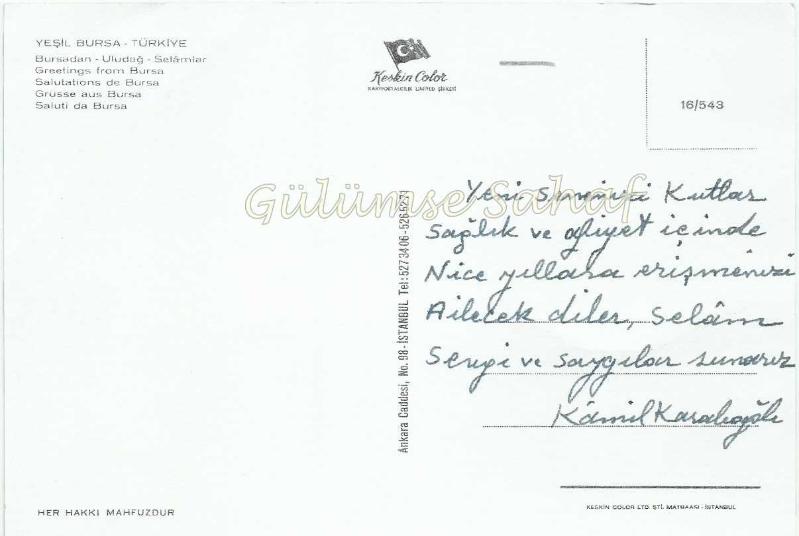 YEŞİL BURSA - TÜRKİYE
Bursadan - Uludağ - Selâmlar
Greetings from Bursa
Salutations de Bursa
Grusse aus Bursa
Saluti da Bursa
Keskin Color
KARTPOSTALCILIK LIMITED ŞİRKETİ
16/543
Gülümse Sahaf
Yeni Kutlar
Sağlık ve afiyet içinde
Nice yıllara erişmenizi
Ailecek diler, Selâm
Sevgi ve saygılar sunarız
Kâmil
Ankara Caddesi, No. 98 - İSTANBUL Tel: 5273406-
HER HAKKI MAHFUZDUR
KESKİN COLOR LTD. ŞTİ. MATBAASI - İSTANBUL